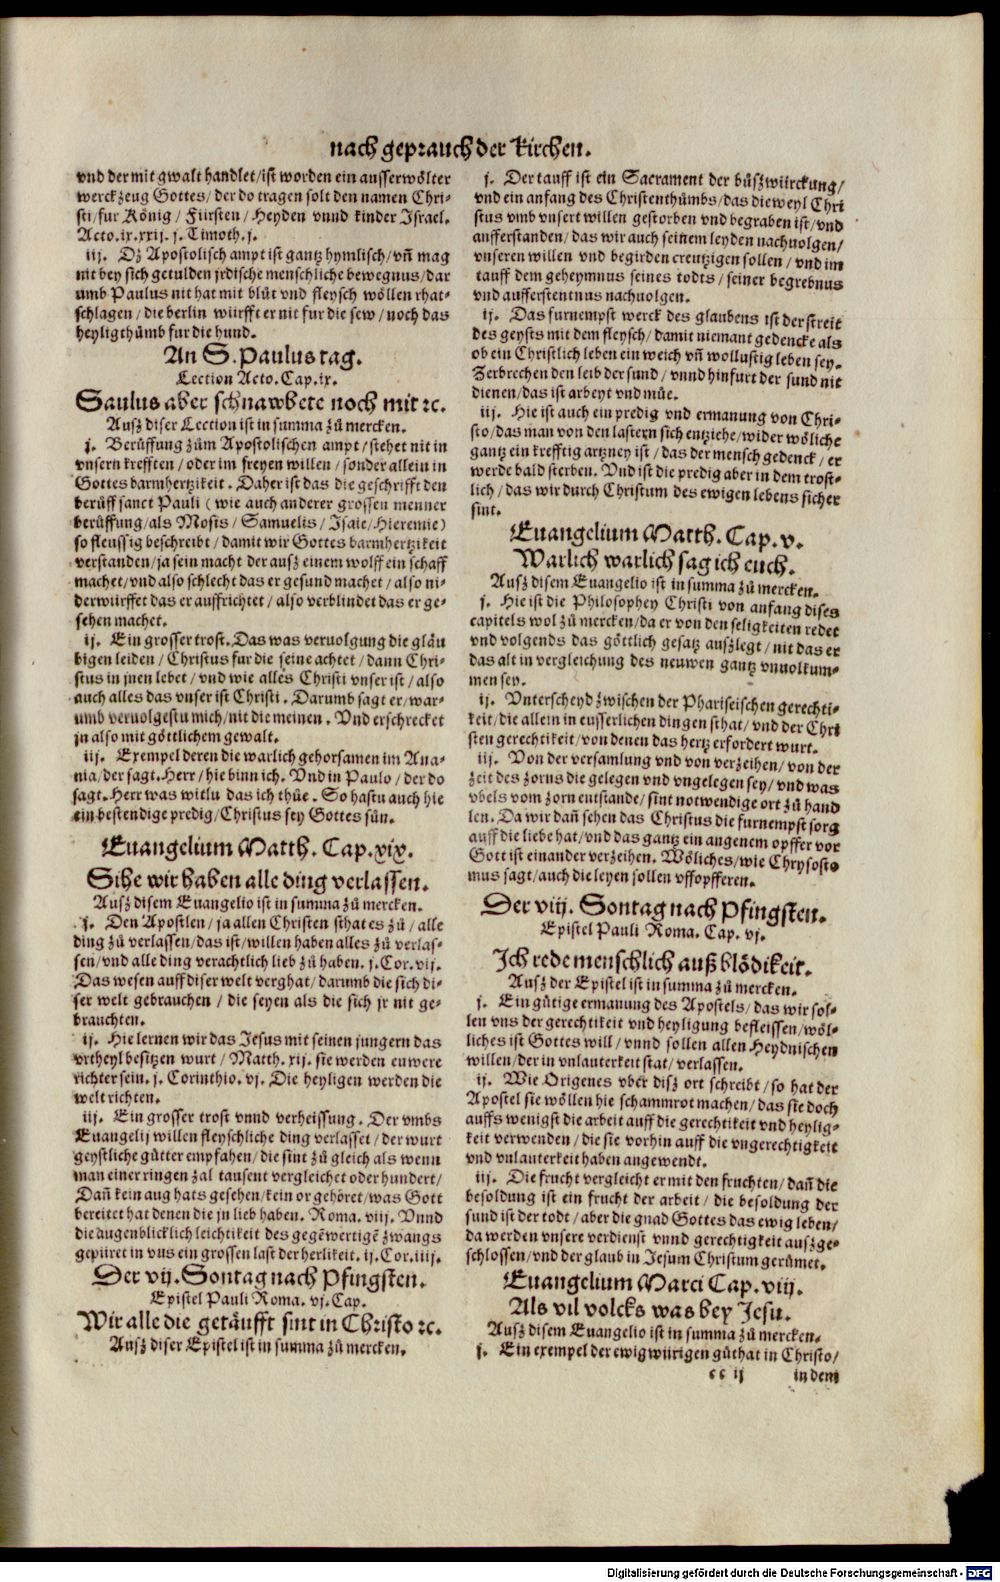 nach geprauch der kirchen.
vnd der mit gwalt handlet/ist worden ein ausserwölter
werckzeug Gottes/der do tragen solt den namen Chri-
sti/fur König/ Fürsten/Heyden vnnd kinder Israel.
Acto.ix.xxij. j. Timoth.j.
iij. Dz Apostolisch ampt ist gantz hymlisch/vn̄ mag
nit bey sich getulden jrdische menschliche bewegnus/dar
umb Paulus nit hat mit blůt vnd fleysch wöllen rhat-
schlagen/die berlin würfft er nit fur die sew/noch das
heyligthůmb fur die hund.
An S.Paulus tag.
Lection Acto.Cap.ix.
Saulus aber schnawbete noch mit ꝛc.
Ausz diser Lection ist in summa zů mercken.
j. Berůffung zům Apostolischen ampt/stehet nit in
vnsern krefften/oder im freyen willen/sonder allein in
Gottes barmhertzikeit. Daher ist das die geschrifft den
berůff sanct Pauli (wie auch anderer grossen menner
berůffung/als Mosis/ Samuelis/ Isaie/Hieremie)
so fleussig beschreibt/damit wir Gottes barmhertzikeit
verstanden/ja sein macht der ausz einem wolff ein schaff
machet/vnd also schlecht das er gesund machet/also ni-
derwürffet das er auffrichtet/also verblindet das er ge-
sehen machet.
ij. Ein grosser trost. Das was veruolgung die gläu
bigen leiden/Christus fur die seine achtet/dann Chri-
stus in jnen lebet/vnd wie alles Christi vnser ist/also
auch alles das vnser ist Christi. Darumb sagt er/war-
umb veruolgestu mich/nit die meinen. Vnd erschrecket
jn also mit göttlichem gewalt.
iij. Exempel deren die warlich gehorsamen im Ana-
nia/der sagt.Herr/hie binn ich. Vnd in Paulo/der do
sagt.Herr was witlu das ich thůe. So hastu auch hie
ein bestendige predig/Christus sey Gottes sůn.
Euangelium Matth. Cap.xix.
Sihe wir haben alle ding verlassen.
Ausz disem Euangelio ist in summa zů mercken.
j. Den Apostlen/ja allen Christen sthat es zů/alle
ding zů verlassen/das ist/willen haben alles zů verlas-
sen/vnd alle ding verachtlich lieb zů haben. j.Cor.vij.
Das wesen auff diser welt verghat/darumb die sich di-
ser welt gebrauchen/ die seyen als die sich jr nit ge-
brauchten.
ij. Hie lernen wir das Jesus mit seinen jungern das
vrtheyl besitzen wurt/Matth.xij. sie werden euwere
richter sein. j. Corinthio. vj. Die heyligen werden die
welt richten.
iij. Ein grosser trost vnnd verheissung. Der vmbs
Euangelij willen fleyschliche ding verlasset/der wurt
geystliche gůtter empfahen/die sint zů gleich als wenn
man einer ringen zal tausent vergleichet oder hundert/
Dañ kein aug hats gesehen/kein or gehöret/was Gott
bereitet hat denen die jn lieb haben. Roma. viij. Vnnd
die augenblicklich leichtikeit des gegēwertigē zwangs
gepüret in vns ein grossen last der herlikeit. ij.Cor.iiij.
Der vij.Sontag nach Pfingsten.
Epistel Pauli Roma. vj.Cap.
Wir alle die getäufft sint in Christo ꝛc.
Ausz diser Epistel ist in summa zů mercken.
j. Der tauff ist ein Sacrament der bůszwürckung/
vnd ein anfang des Christenthůmbs/das die weyl Chri
stus vmb vnsert willen gestorben vnd begraben ist/vnd
aufferstanden/das wir auch seinem leyden nachuolgen/
vnseren willen vnd begirden creutzigen sollen/vnd im
tauff dem geheymnus seines todts/seiner begrebnus
vnd aufferstentnus nachuolgen.
ij. Das furnempst werck des glaubens ist der streit
des geysts mit dem fleysch/damit niemant gedencke als
ob ein Christlich leben ein weich vn̄ wollustig leben sey.
Zerbrechen den leib der sund/vnnd hinfurt der sund nit
dienen/das ist arbeyt vnd můe.
iij. Hie ist auch ein predig vnd ermanung von Chri-
sto/das man von den lastern sich entziehe/wider wöliche
gantz ein krefftig artzney ist/das der mensch gedenck/er
werde bald sterben. Vnd ist die predig aber in dem trost-
lich/das wir durch Christum des ewigen lebens sicher
sint.
Euangelium Matth. Cap. v.
Warlich warlich sag ich euch.
Ausz disem Euangelio ist in summa zů mercken.
j. Hie ist die Philosophey Christi von anfang dises
capitels wol zů mercken/da er von den seligkeiten redet
vnd volgends das göttlich gesatz auszlegt/nit das er
das alt in vergleichung des neuwen gantz vnuolkum-
men sey.
ij. Vnterscheyd zwischen der Phariseischen gerechti-
keit/die allein in eusserlichen dingen sthat/vnd der Chri
sten gerechtikeit/von denen das hertz erfordert wurt.
iij. Von der versamlung vnd von verzeihen/von der
zeit des zorns die gelegen vnd vngelegen sey/vnd was
vbels vom zorn entstande/sint notwendige ort zů hand
len. Da wir dañ sehen das Christus die furnempst sorg
auff die liebe hat/vnd das gantz ein angenem opffer vor
Gott ist einander verzeihen. Wöliches/wie Chrysosto
mus sagt/auch die leyen sollen vffopfferen.
Der viij. Sontag nach Pfingsten.
Epistel Pauli Roma. Cap. vj.
Ich rede menschlich auß blödikeit.
Ausz der Epistel ist in summa zů mercken.
j. Ein gůtige ermanung des Apostels/das wir sol-
len vns der gerechtikeit vnd heyligung befleissen/wöl-
liches ist Gottes will/vnnd sollen allen Heydnischen
willen/der in vnlauterkeit stat/verlassen.
ij. Wie Origenes vber disz ort schreibt/so hat der
Apostel sie wöllen hie schammrot machen/das sie doch
auffs wenigst die arbeit auff die gerechtikeit vnd heylig-
keit verwenden/die sie vorhin auff die vngerechtigkeit
vnd vnlauterkeit haben angewendt.
iij. Die frucht vergleicht er mit den fruchten/dañ die
besoldung ist ein frucht der arbeit/ die besoldung der
sund ist der todt/aber die gnad Gottes das ewig leben/
da werden vnsere verdienst vnnd gerechtigkeit auszge-
schlossen/vnd der glaub in Jesum Christum gerümet.
Euangelium Marci Cap. viij.
Als vil volcks was bey Jesu.
Ausz disem Euangelio ist in summa zů mercken.
j. Ein exempel der ewigwürigen gůthat in Christo/
cc ij in dem
Digitalisierung gefördert durch die Deutsche Forschungsgemeinschaft - DFG